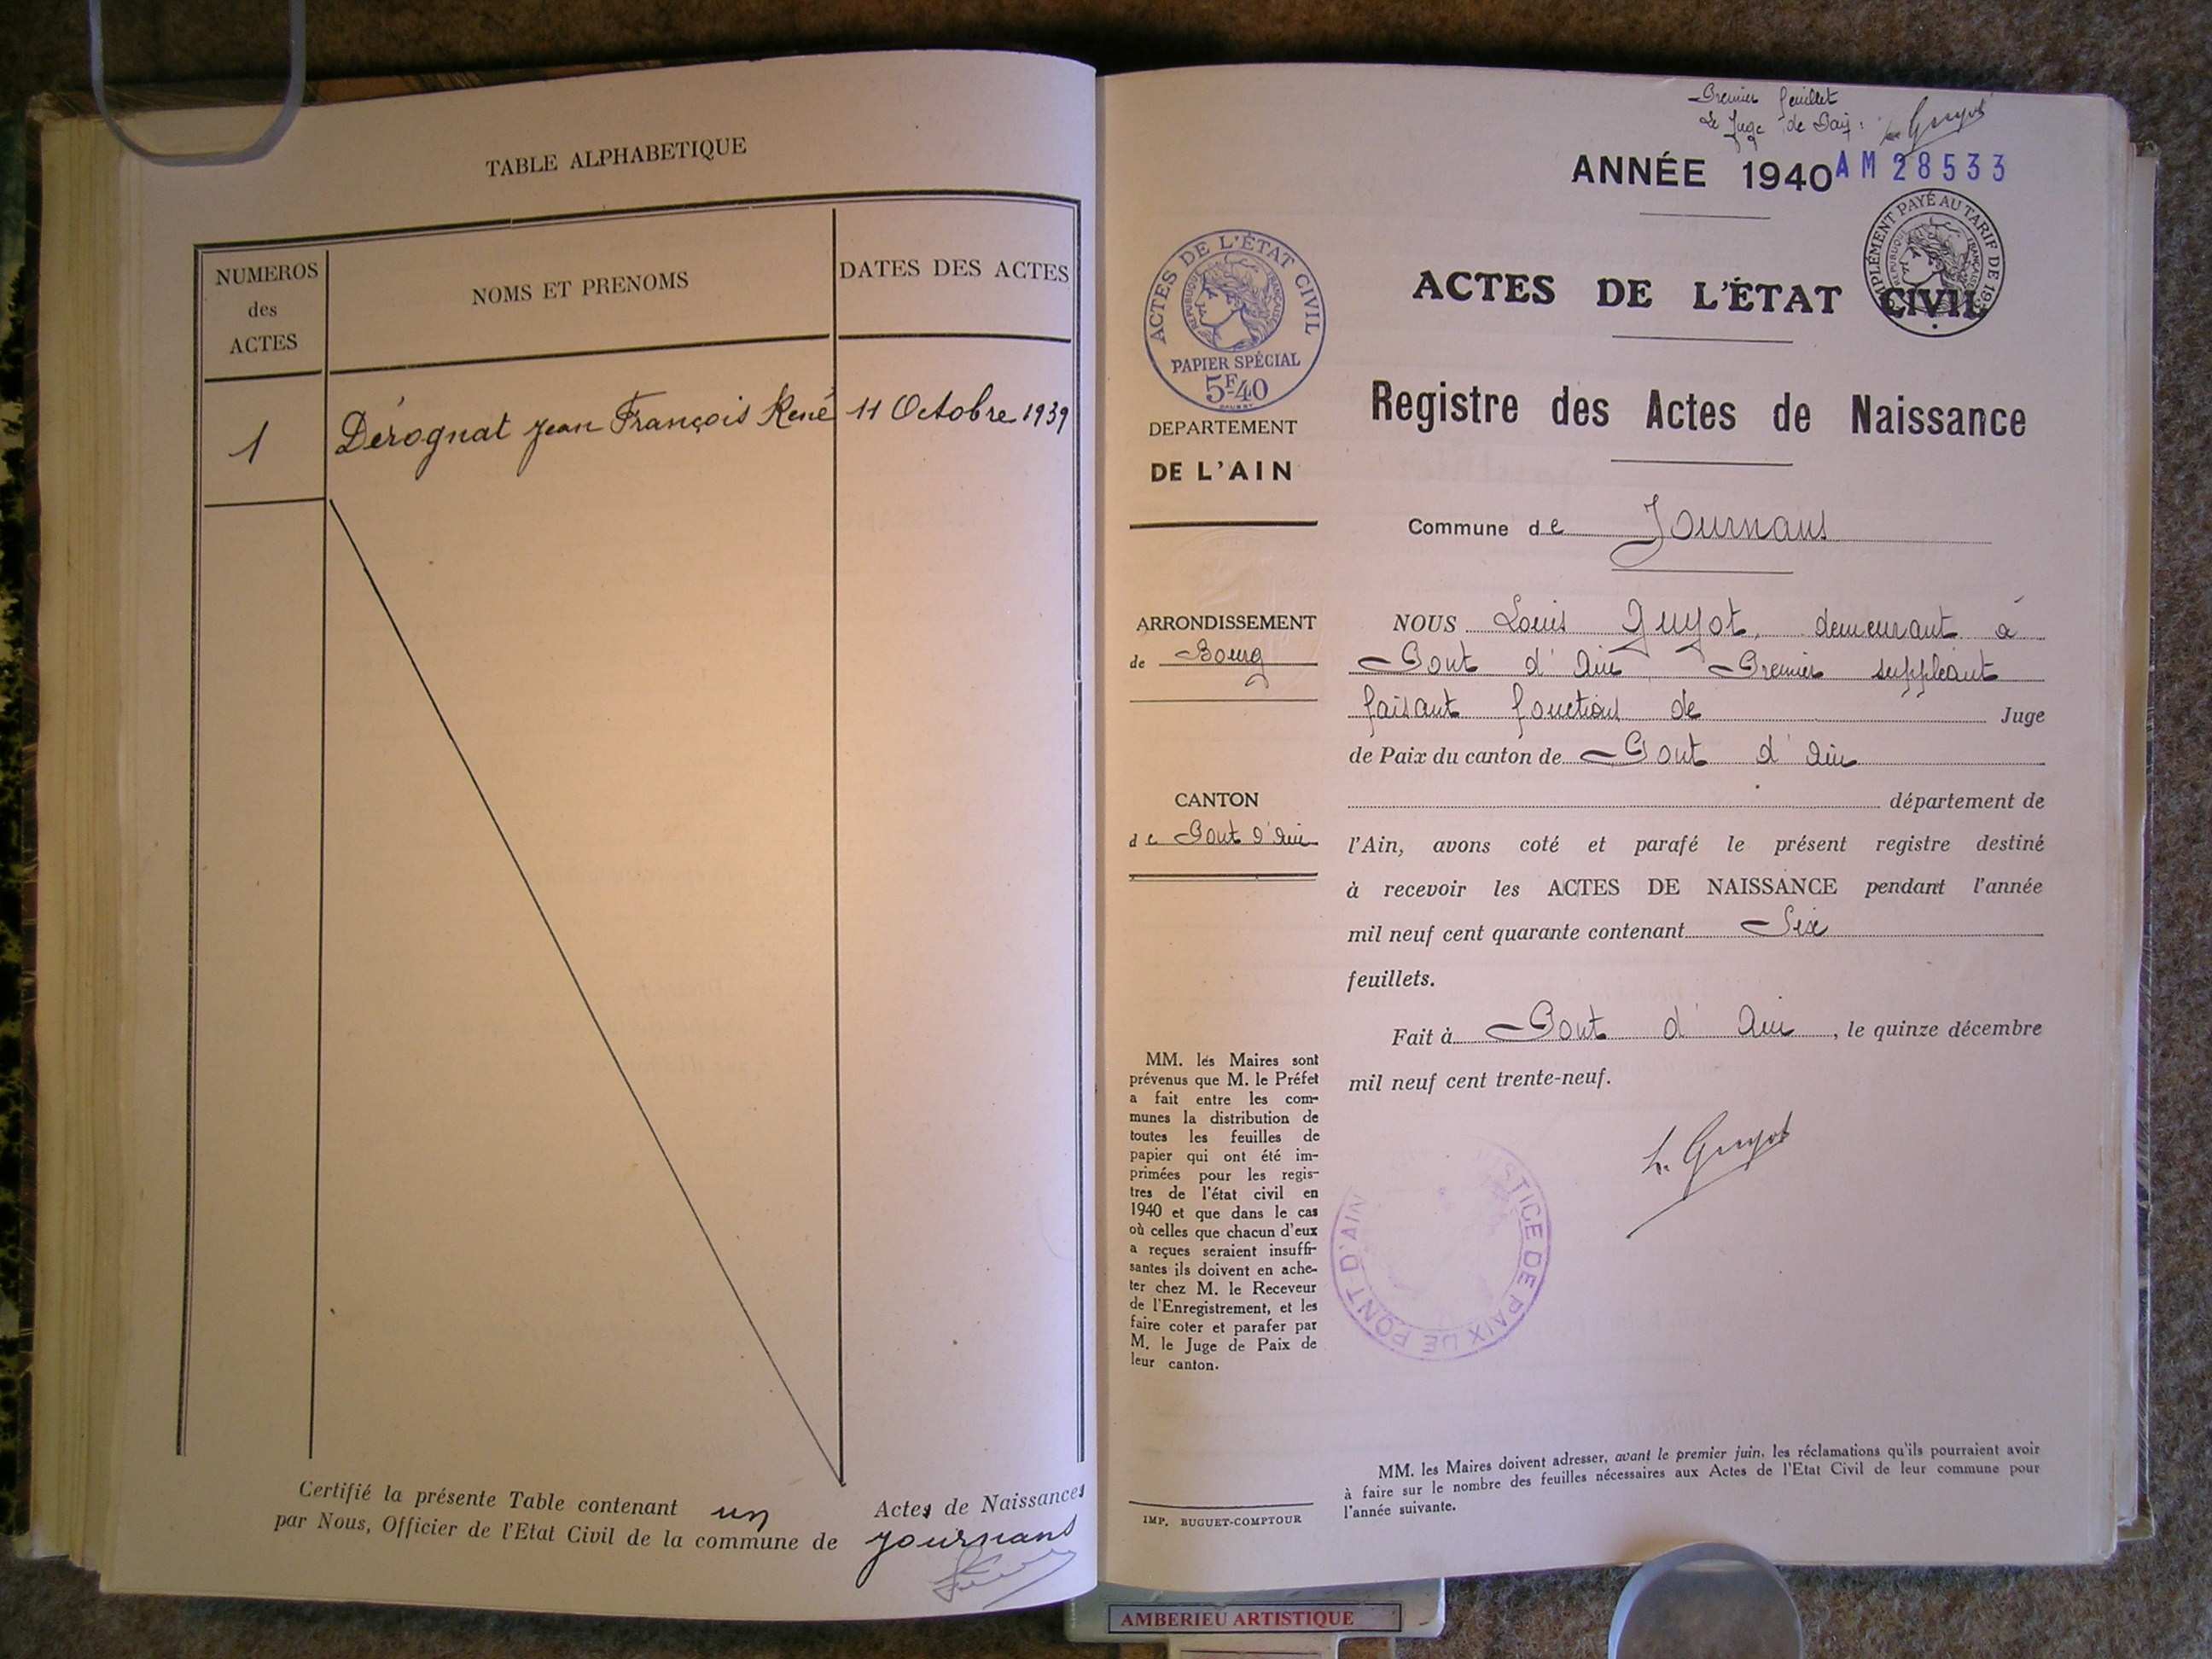 TABLE ALPHABETIQUE
NUMEROS
des
ACTES
NOMS ET PRENOMS
DATES DES ACTES
1
Dérognat Jean François René
11 Octobre 1939
Certifié la présente Table contenant un Actes de Naissances
par Nous, Officier de l'Etat Civil de la commune de Journans
Premier feuillet
Le Juge de Paix : L. Guyot
ANNÉE 1940
AM 28533
SUPPLÉMENT PAYÉ AU TARIF DE
RÉPUBLIQUE FRANÇAISE
ACTES DE L'ÉTAT CIVIL
RÉPUBLIQUE FRANÇAISE
PAPIER SPÉCIAL
5F40
ACTES DE L'ÉTAT CIVIL
Registre des Actes de Naissance
DEPARTEMENT
DE L'AIN
Commune de Journans
ARRONDISSEMENT
de Bourg
CANTON
de Pont d'Ain
NOUS Louis Guyot, demeurant à
Pont d'Ain, Premier suppléant
faisant fonctions de Juge
de Paix du canton de Pont d'Ain
département de
l'Ain, avons coté et parafé le présent registre destiné
à recevoir les ACTES DE NAISSANCE pendant l'année
mil neuf cent quarante contenant Six
feuillets.
Fait à Pont d'Ain, le quinze décembre
mil neuf cent trente-neuf.
L. Guyot
JUSTICE DE PAIX DE PONT-D'AIN
MM. les Maires sont
prévenus que M. le Préfet
a fait entre les com-
munes la distribution de
toutes les feuilles de
papier qui ont été im-
primées pour les regis-
tres de l'état civil en
1940 et que dans le cas
où celles que chacun d'eux
a reçues seraient insuffi-
santes ils doivent en ache-
ter chez M. le Receveur
de l'Enregistrement, et les
faire coter et parafer par
M. le Juge de Paix de
leur canton.
IMP. BUGUET-COMPTOUR
MM. les Maires doivent adresser, avant le premier juin, les réclamations qu'ils pourraient avoir
à faire sur le nombre des feuilles nécessaires aux Actes de l'Etat Civil de leur commune pour
l'année suivante.
AMBERIEU ARTISTIQUE